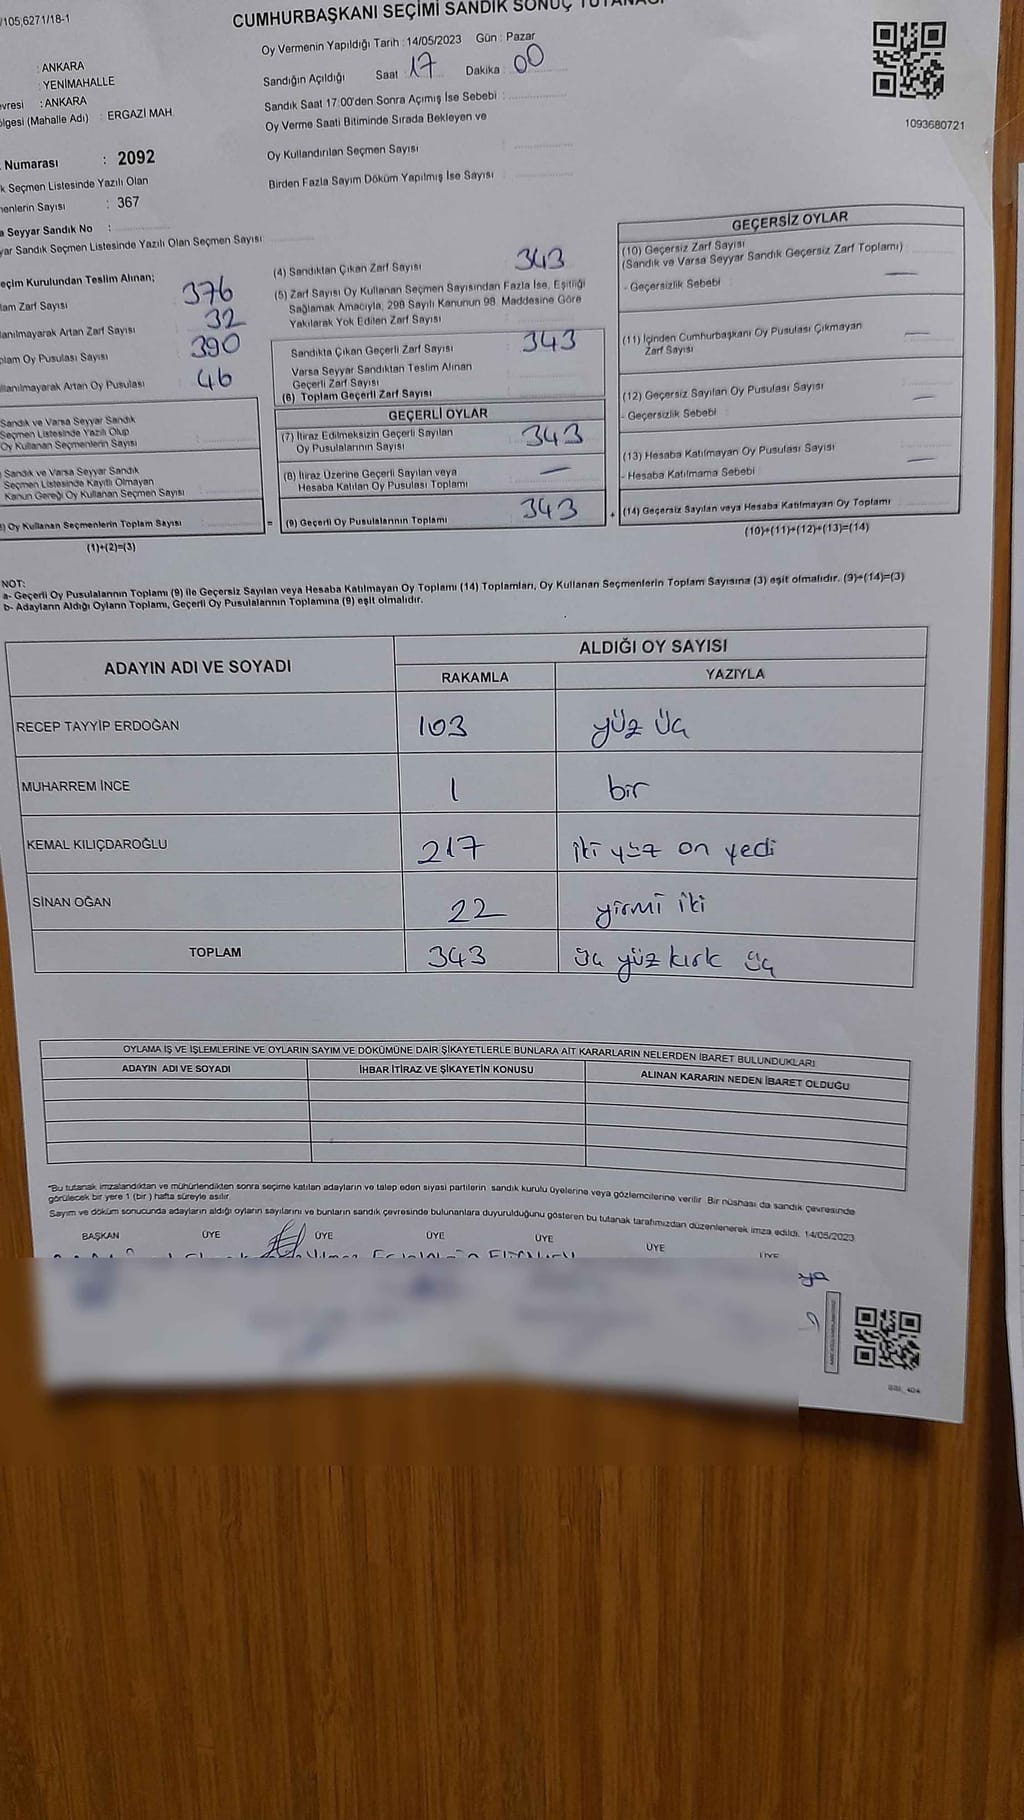 /105,6271/18-1
CUMHURBAŞKANI SEÇİMİ SANDIK SONUÇ TUTANAĞI
: ANKARA
: YENİMAHALLE
: ANKARA
(Mahalle Adı) : ERGAZİ MAH.
Numarası : 2092
Seçmen Listesinde Yazılı Olan
Sayısı : 367
Seyyar Sandık No :
Sandık Seçmen Listesinde Yazılı Olan Seçmen Sayısı
Oy Vermenin Yapıldığı Tarih : 14/05/2023 Gün : Pazar
Sandığın Açıldığı Saat 17 Dakika 00
Sandık Saat 17:00'den Sonra Açımış İse Sebebi :
Oy Verme Saati Bitiminde Sırada Bekleyen ve
Oy Kullandırılan Seçmen Sayısı
Birden Fazla Sayım Döküm Yapılmış İse Sayısı
1093680721
Kurulundan Teslim Alınan;
Zarf Sayısı 376
Artan Zarf Sayısı 32
Oy Pusulası Sayısı 390
Artan Oy Pusulası 46
Sandık ve Varsa Seyyar Sandık
Seçmen Listesinde Yazılı Olup
Oy Kullanan Seçmenlerin Sayısı
Sandık ve Varsa Seyyar Sandık
Seçmen Listesinde Kayıtlı Olmayan
Kanun Gereği Oy Kullanan Seçmen Sayısı
Oy Kullanan Seçmenlerin Toplam Sayısı
(1)+(2)=(3)
(4) Sandıktan Çıkan Zarf Sayısı 343
(5) Zarf Sayısı Oy Kullanan Seçmen Sayısından Fazla İse, Eşitliği
Sağlamak Amacıyla, 298 Sayılı Kanunun 98. Maddesine Göre
Yakılarak Yok Edilen Zarf Sayısı
Sandıkta Çıkan Geçerli Zarf Sayısı 343
Varsa Seyyar Sandıktan Teslim Alınan
Geçerli Zarf Sayısı
(6) Toplam Geçerli Zarf Sayısı
GEÇERLİ OYLAR
(7) İtiraz Edilmeksizin Geçerli Sayılan
Oy Pusulasının Sayısı 343
(8) İtiraz Üzerine Geçerli Sayılan veya
Hesaba Katılan Oy Pusulası Toplamı —
= (9) Geçerli Oy Pusulalarının Toplamı 343
GEÇERSİZ OYLAR
(10) Geçersiz Zarf Sayısı
(Sandık ve Varsa Seyyar Sandık Geçersiz Zarf Toplamı)
- Geçersizlik Sebebi : —
(11) İçinden Cumhurbaşkanı Oy Pusulası Çıkmayan
Zarf Sayısı —
(12) Geçersiz Sayılan Oy Pusulası Sayısı
- Geçersizlik Sebebi : —
(13) Hesaba Katılmayan Oy Pusulası Sayısı
- Hesaba Katılmama Sebebi —
+ (14) Geçersiz Sayılan veya Hesaba Katılmayan Oy Toplamı
(10)+(11)+(12)+(13)=(14)
NOT:
a- Geçerli Oy Pusulalarının Toplamı (9) ile Geçersiz Sayılan veya Hesaba Katılmayan Oy Toplamı (14) Toplamları, Oy Kullanan Seçmenlerin Toplam Sayısına (3) eşit olmalıdır. (9)+(14)=(3)
b- Adayların Aldığı Oyların Toplamı, Geçerli Oy Pusulalarının Toplamına (9) eşit olmalıdır.
ADAYIN ADI VE SOYADI
ALDIĞI OY SAYISI
RAKAMLA YAZIYLA
RECEP TAYYİP ERDOĞAN 103 yüz üç
MUHARREM İNCE 1 bir
KEMAL KILIÇDAROĞLU 217 iki yüz on yedi
SİNAN OĞAN 22 yirmi iki
TOPLAM 343 üç yüz kırk üç
OYLAMA İŞ VE İŞLEMLERİNE VE OYLARIN SAYIM VE DÖKÜMÜNE DAİR ŞİKAYETLERLE BUNLARA AİT KARARLARIN NELERDEN İBARET BULUNDUKLARI
ADAYIN ADI VE SOYADI İHBAR İTİRAZ VE ŞİKAYETİN KONUSU ALINAN KARARIN NEDEN İBARET OLDUĞU
"Bu tutanak imzalandıktan ve mühürlendikten sonra seçime katılan adayların ve talep eden siyasi partilerin sandık kurulu üyelerine veya gözlemcilerine verilir. Bir nüshası da sandık çevresinde
görülecek bir yere 1 (bir) hafta süreyle asılır.
Sayım ve döküm sonucunda adayların aldığı oyların sayılarını ve bunların sandık çevresinde bulunanlara duyurulduğunu gösteren bu tutanak tarafımızdan düzenlenerek imza edildi. 14/05/2023
BAŞKAN ÜYE ÜYE ÜYE ÜYE ÜYE ÜYE